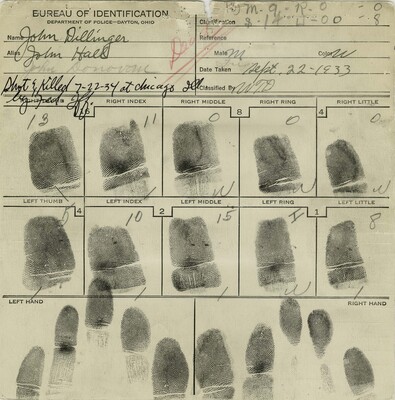 BUREAU OF IDENTIFICATION
DEPARTMENT OF POLICE—DAYTON, OHIO
Classification
Name John Dillinger
Reference
Alias John Hall
Male M Color W
Date Taken Sept. 22-1933
Shot & Killed 7-22-34 at Chicago Ill
Classified By
RIGHT INDEX RIGHT MIDDLE RIGHT RING RIGHT LITTLE
8 4
13 11 0 0 0
LEFT THUMB LEFT INDEX LEFT MIDDLE LEFT RING LEFT LITTLE
4 2 1
5 10 15 I 8
LEFT HAND RIGHT HAND